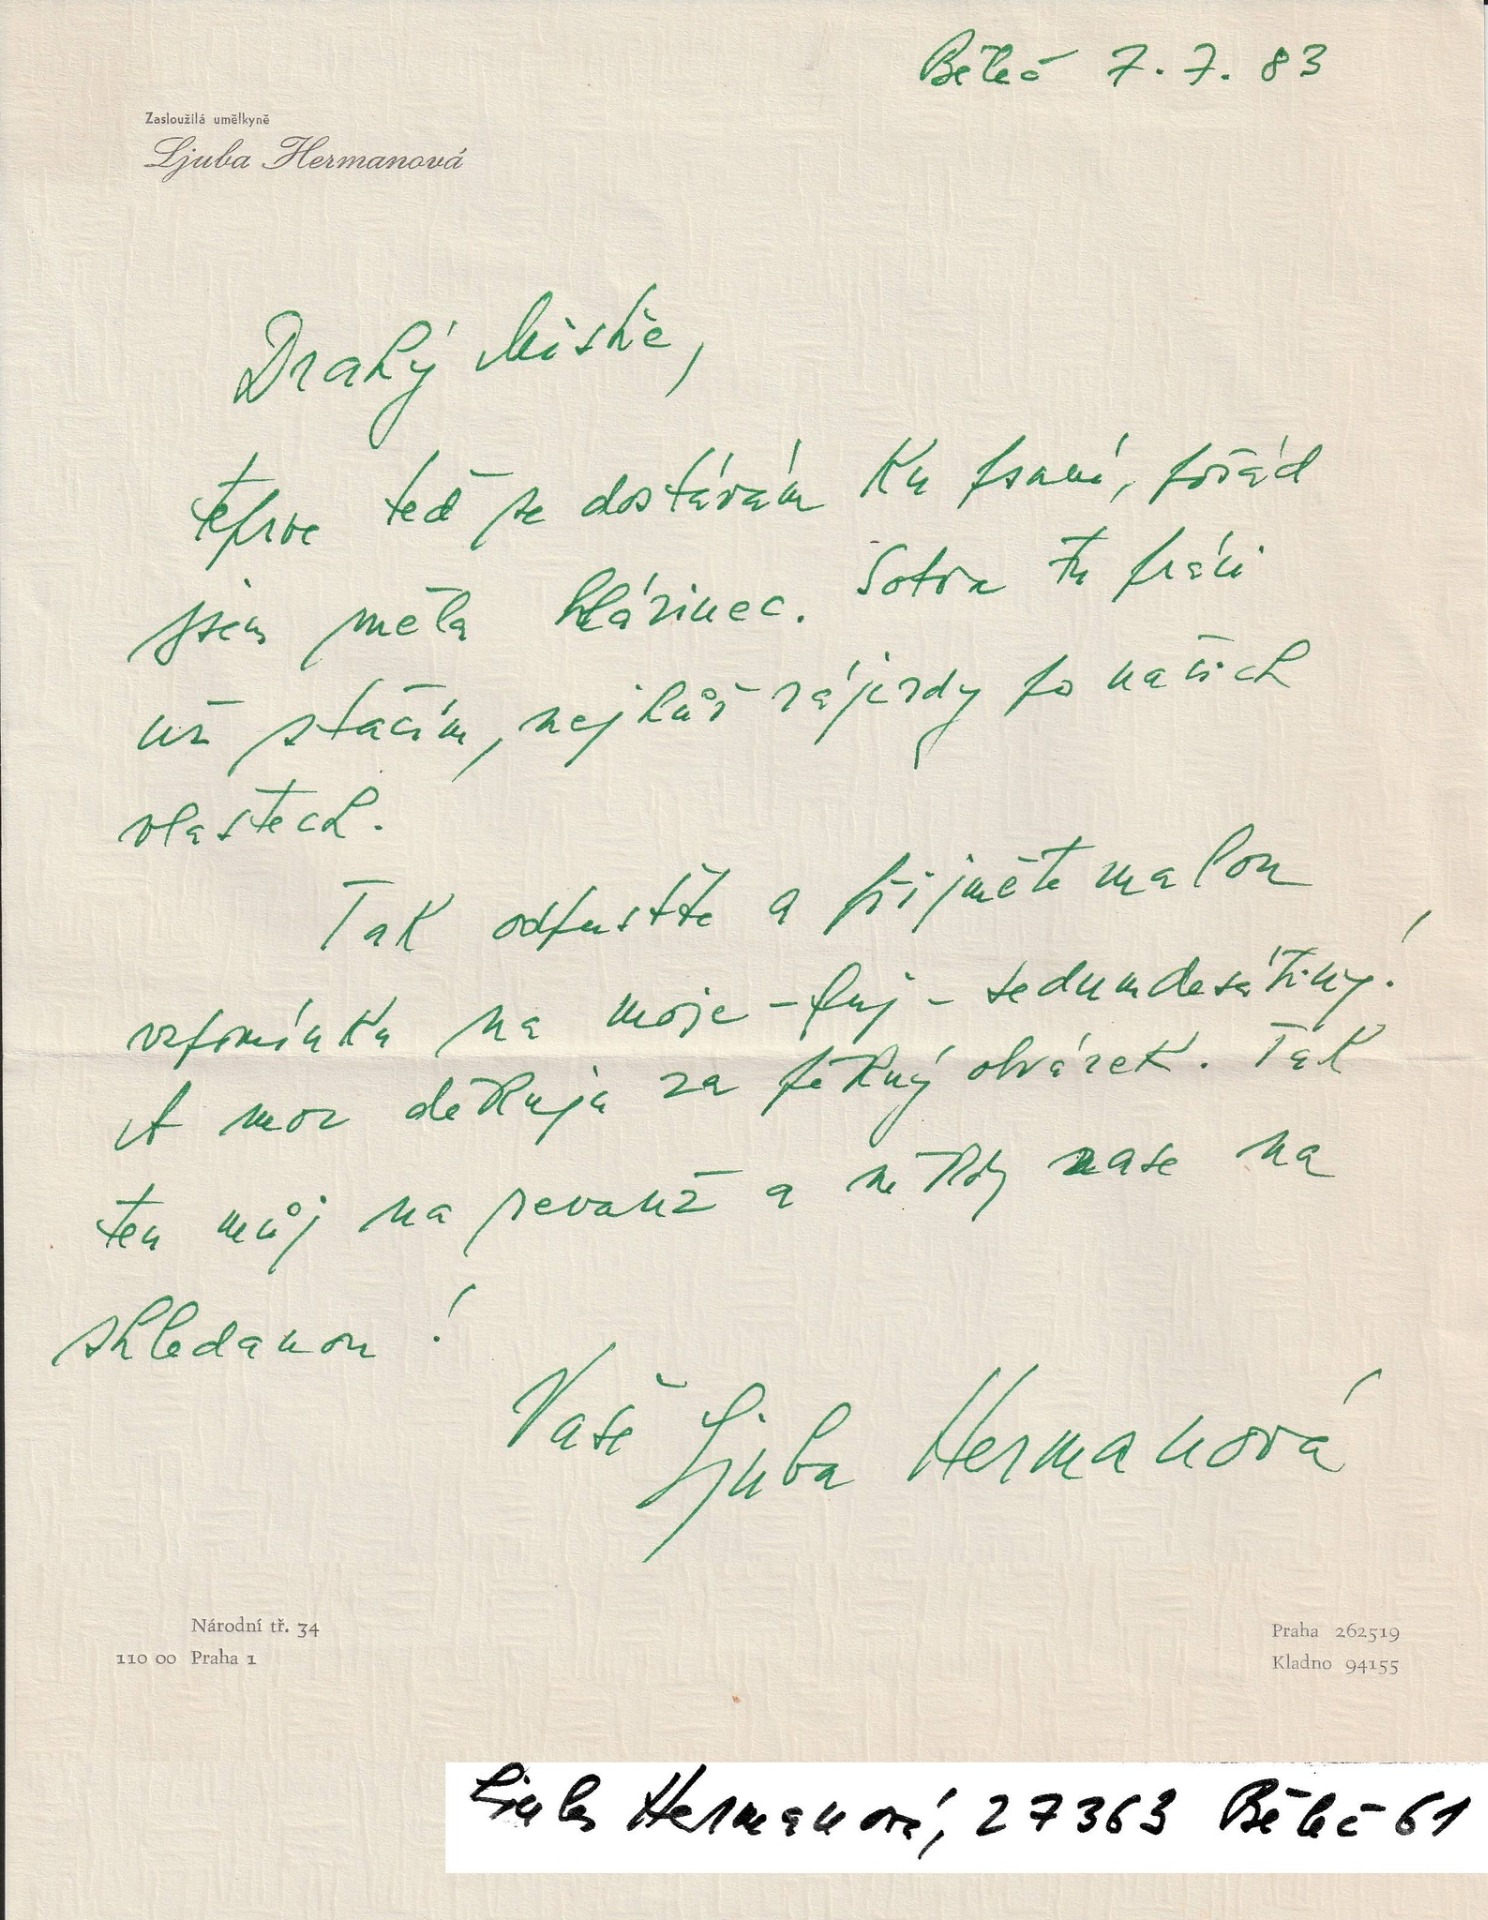 Běleč 7.7.83
Zasloužilá umělkyně
Ljuba Hermanová
Drahý Mistře,
teprve teď se dostávám ku psaní, pořád
jsem měla blázinec. Sotva tu práci
už stačím, nejhůř zájezdy po našich
vlastech.
Tak odpusťte a přijměte malou
vzpomínku na moje - fuj - sedumdesátiny!
A moc děkuju za pěkný obrázek. Tak
ten můj na revanž a někdy zase na
shledanou!
Vaše Ljuba Hermanová
Národní tř. 34
110 00 Praha 1
Praha 262519
Kladno 94155
Ljuba Hermanová, 27363 Běleč 61